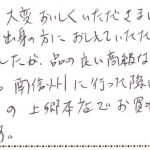 大変おいしくいただきまし
出身の方におしえていただ
したが、品の良い高級な
。南信州に行った際に
の上郷本店でお買
す。